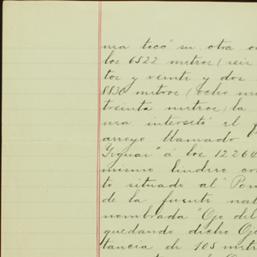 nea tocó su otra or
los 6522 metros (seis
tos y veinte y dos
8830 metros (ocho mi
treinta metros) la
nea intersetó el
arroyo llamado
á los 12264
mismo lindero con
to situado al Pon
de la fuente nat
nombrada "Ojo del
quedando dicho Oj
tancia de 105 metr